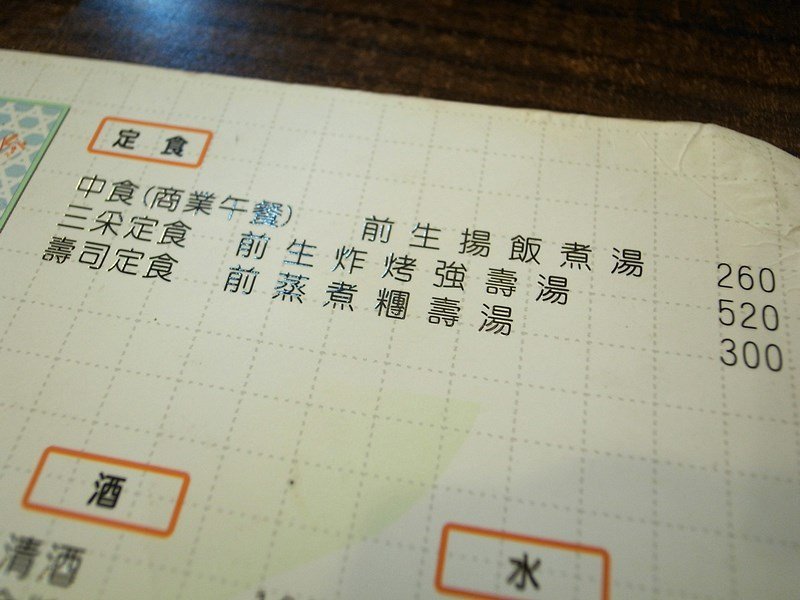 定食
中食(商業午餐) 前生揚飯煮湯 260
三采定食 前生炸烤強壽湯 520
壽司定食 前蒸煮糰壽湯 300
酒
水
清酒